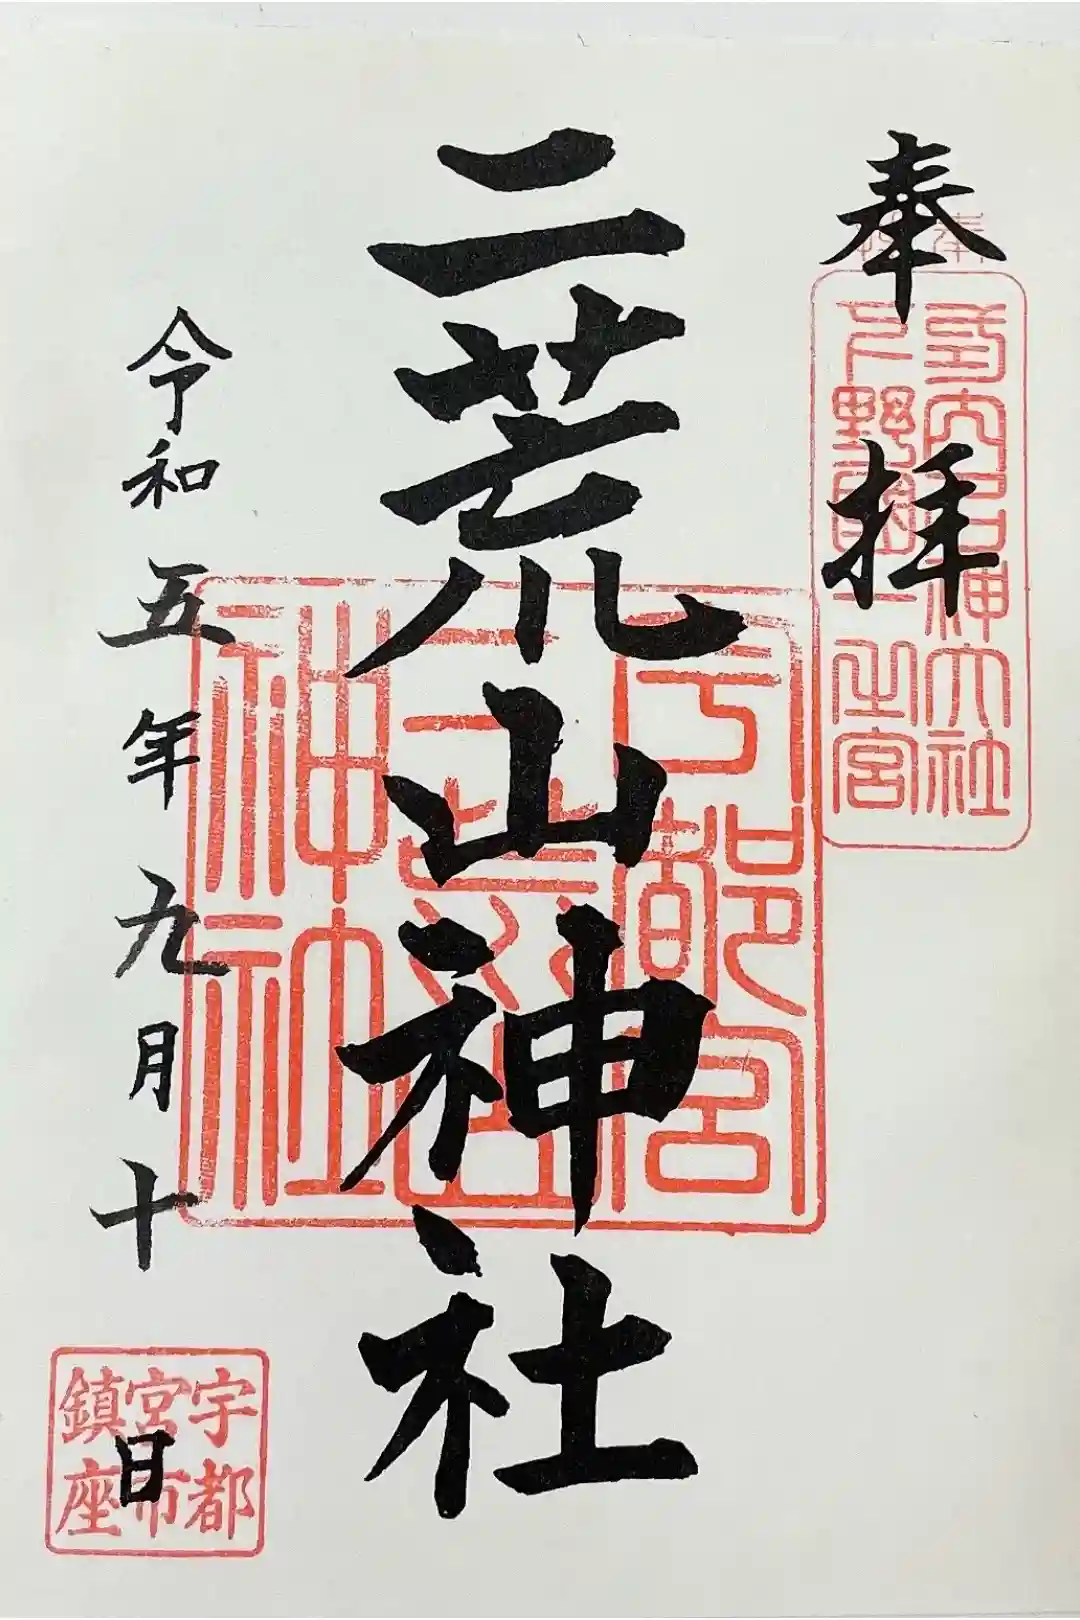 奉拝
延喜式内名神大社
下野國一之宮
二荒山神社
宇都宮
二荒山
神社
令和五年九月十日
宇都
宮市
鎮座